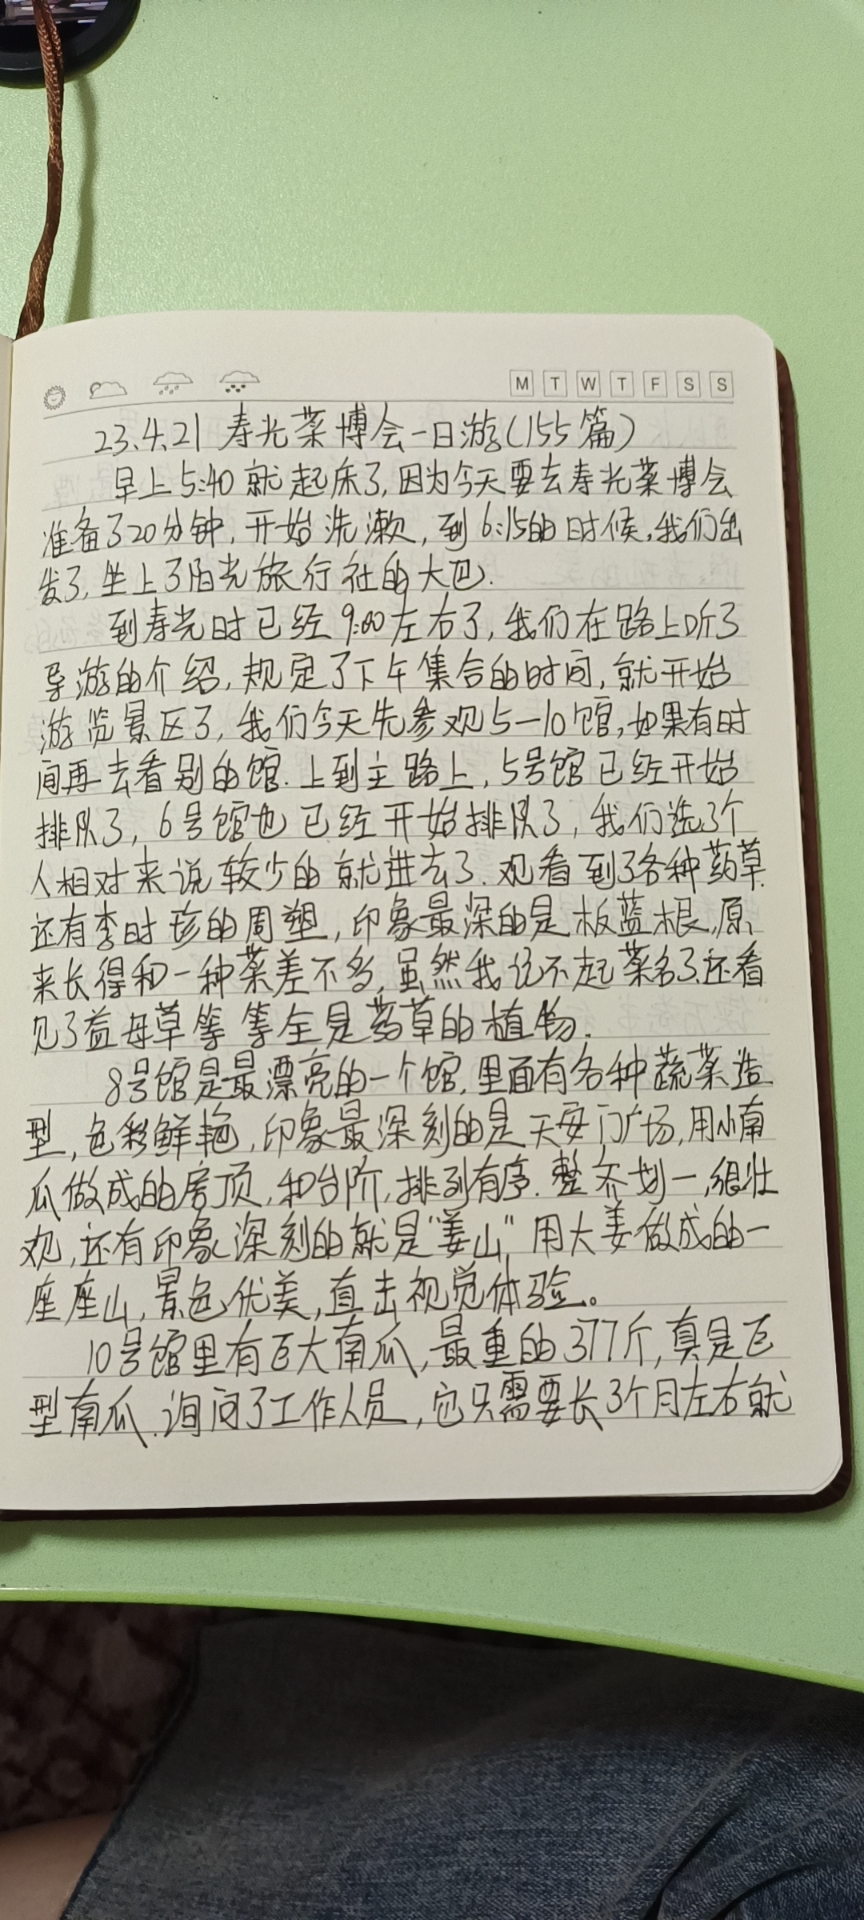 M T W T F S S
23.4.21 寿光菜博会一日游(155篇)
早上5:40就起床了,因为今天要去寿光菜博会
准备了20分钟,开始洗漱,到6:15的时候,我们出
发了,坐上了阳光旅行社的大巴.
到寿光时已经9:00左右了,我们在路上听了
导游的介绍,规定了下午集合的时间,就开始
游览景区了,我们今天先参观5-10馆,如果有时
间再去看别的馆.上到主路上,5号馆已经开始
排队了,6号馆也已经开始排队了,我们选了个
人相对来说较少的就进去了.观看到了各种药草
还有李时珍的周塑,印象最深的是板蓝根,原
来长得和一种菜差不多,虽然我记不起菜名了,还看
见了益母草等等全是药草的植物.
8号馆是最漂亮的一个馆,里面有各种蔬菜造
型,色彩鲜艳,印象最深刻的是天安门广场,用小南
瓜做成的房顶,和台阶,排列有序.整齐划一,很壮
观,还有印象深刻的就是"姜山",用大姜做成的一
座座山,景色优美,直击视觉体验。
10号馆里有巨大南瓜,最重的377斤,真是巨
型南瓜.询问了工作人员,它只需要长3个月左右就